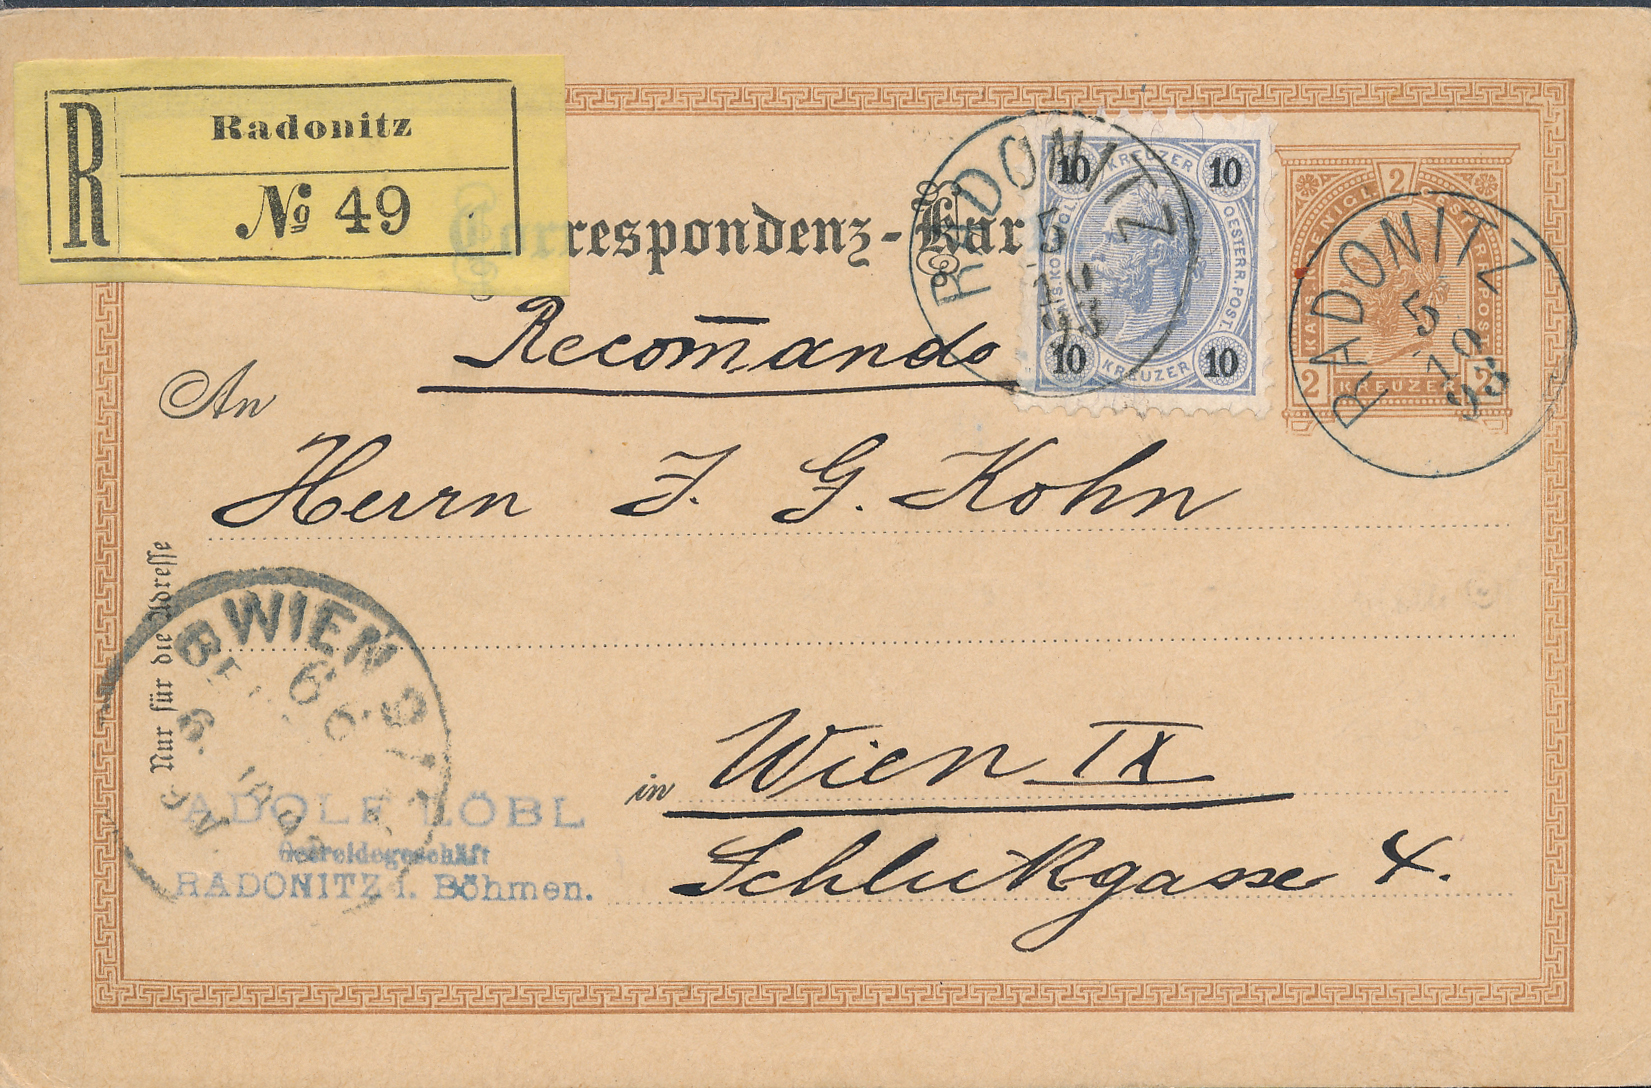 R
Radonitz
№ 49
Correspondenz-Kar
Recom̄ando
RADONITZ
5
10
93
10 KREUZER 10
OESTERR. POST.
10 KREUZER 10
2
KAIS. KOENIGL. OESTERR. POST
2 KREUZER 2
RADONITZ
5
10
93
An
Herrn J. G. Kohn
Nur für die Adresse
WIEN 9/
in Wien IX
Schlickgasse 4.
ADOLF LÖBL
Getreidegeschäft
RADONITZ i. Böhmen.